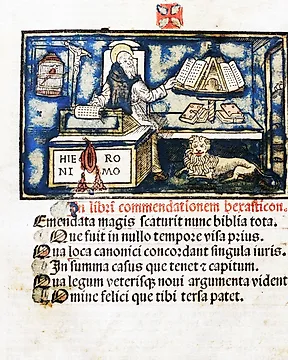 HIE RO
NI MO
In libri commendationem hexasticon.
Emendata magis scaturit nunc biblia tota.
Que fuit in nullo tempore visa prius.
Qua loca canonici concordant singula iuris.
In summa casus que tenet & capitum.
Qua legum veterisque novi argumenta vident
Omine felici que tibi tersa patet.